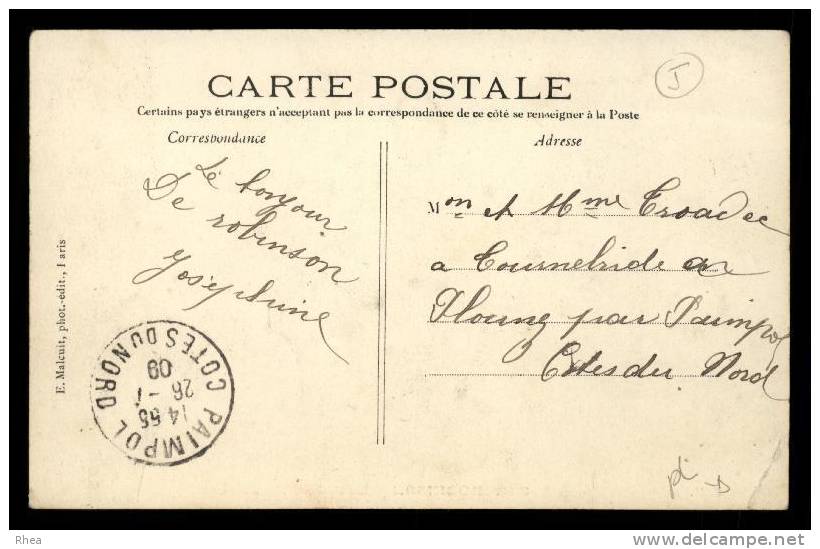 CARTE POSTALE
Certains pays étrangers n'acceptant pas la correspondance de ce côté se renseigner à la Poste
Correspondance
Adresse
J
Le bonjour
De robinson
Joséphine
Mon et Mme Troadec
a
Plouny par Paimpol
Côtes du Nord
E. Malcuit, phot.-édit., Paris
PAIMPOL
14 55
26 - 7
09
COTES DU NORD
Rhea
www.delcampe.net